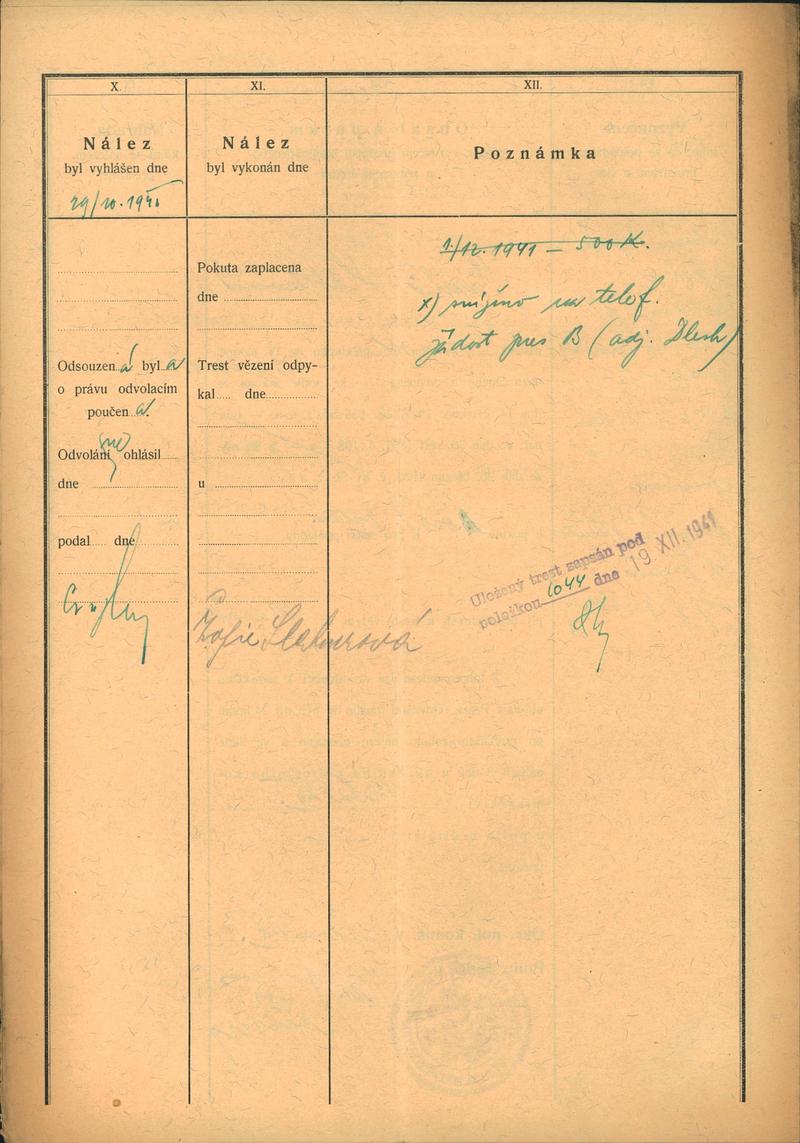 X.
Nález
byl vyhlášen dne
29/10. 1941
Odsouzen á byl a
o právu odvolacím
poučen a.
Odvolání ne ohlásil
dne
podal dne
XI.
Nález
byl vykonán dne
Pokuta zaplacena
dne
Trest vězení odpy-
kal dne
u
Žofie
XII.
Poznámka
1./12. 1941 – 500 K.
x) sníženo na telef.
žádost pres B (adj.
Uložený trest zapsán pod
položkou 1044 dne 19 XII. 1941